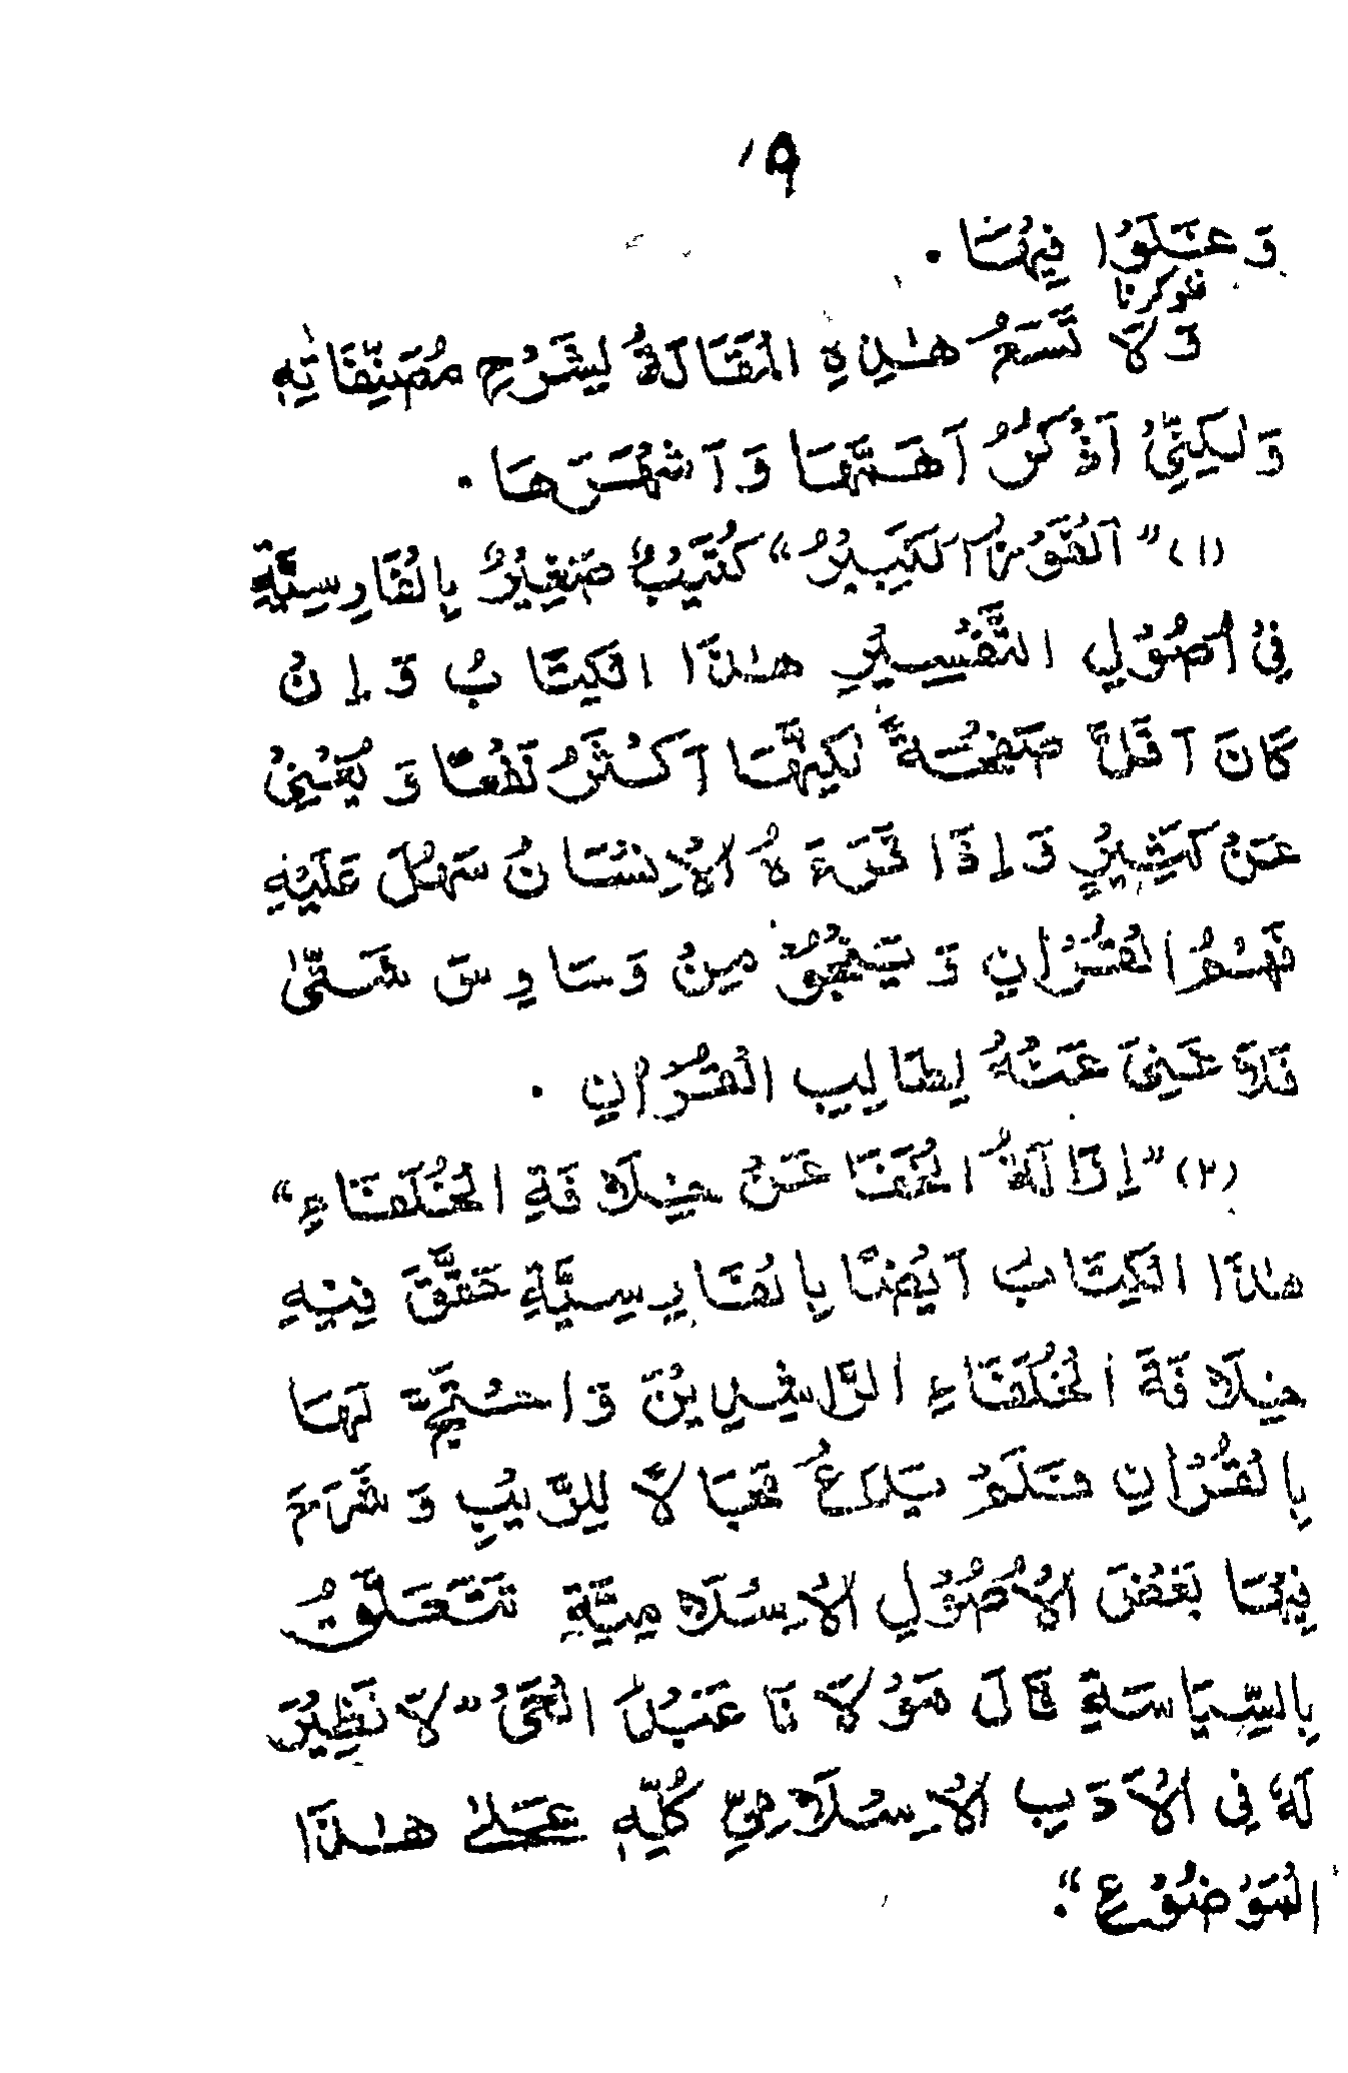 ١٩
وَغَلَوْا فِيْهَا ۔
غلو کرنا
وَلَا تَسَعُ هٰذِهِ الْمَقَالَةُ لِشَرْحِ مُصَنَّفَاتِهٖ
وَلٰكِنِّىْ اَذْكُرُ اَهَمَّهَا وَاَشْهَرَهَا ۔
(١) ”اَلْفَوْزُ الْكَبِيْرُ“ كُتَيْبٌ صَغِيْرٌ بِالْفَارِسِيَّةِ
فِىْ اُصُوْلِ التَّفْسِيْرِ هٰذَا الْكِتَابُ وَاِنْ
كَانَ اَقَلَّ صَفْحَةً لٰكِنَّهَا اَكْثَرُ نَفْعًا وَيُغْنِىْ
عَنْ كَثِيْرٍ وَاِذَا قَرَءَهُ الْاِنْسَانُ سَهُلَ عَلَيْهِ
فَهْمُ الْقُرْاٰنِ وَيَنْجُوْ مِنْ وَسَاوِسَ شَتّٰى
قَدْ غَنِىَ عَنْهُ لِطَالِبِ الْقُرْاٰنِ ۔
(٢) ”اِزَالَةُ الْخَفَا عَنْ خِلَافَةِ الْخُلَفَاءِ“
هٰذَا الْكِتَابُ اَيْضًا بِالْفَارِسِيَّةِ حَقَّقَ فِيْهِ
خِلَافَةَ الْخُلَفَاءِ الرَّاشِدِيْنَ وَاحْتَجَّ لَهَا
بِالْقُرْاٰنِ فَلَمْ يَدَعْ مَجَالًا لِلرَّيْبِ وَشَرَحَ
فِيْهَا بَعْضَ الْاُصُوْلِ الْاِسْلَامِيَّةِ تَتَعَلَّقُ
بِالسِّيَاسَةِ قَالَ مَوْلَانَا عَبْدُ الْحَىِّ ”لَا نَظِيْرَ
لَهٗ فِى الْاَدَبِ الْاِسْلَامِىِّ كُلِّهٖ عَلٰى هٰذَا
الْمَوْضُوْعِ“۔